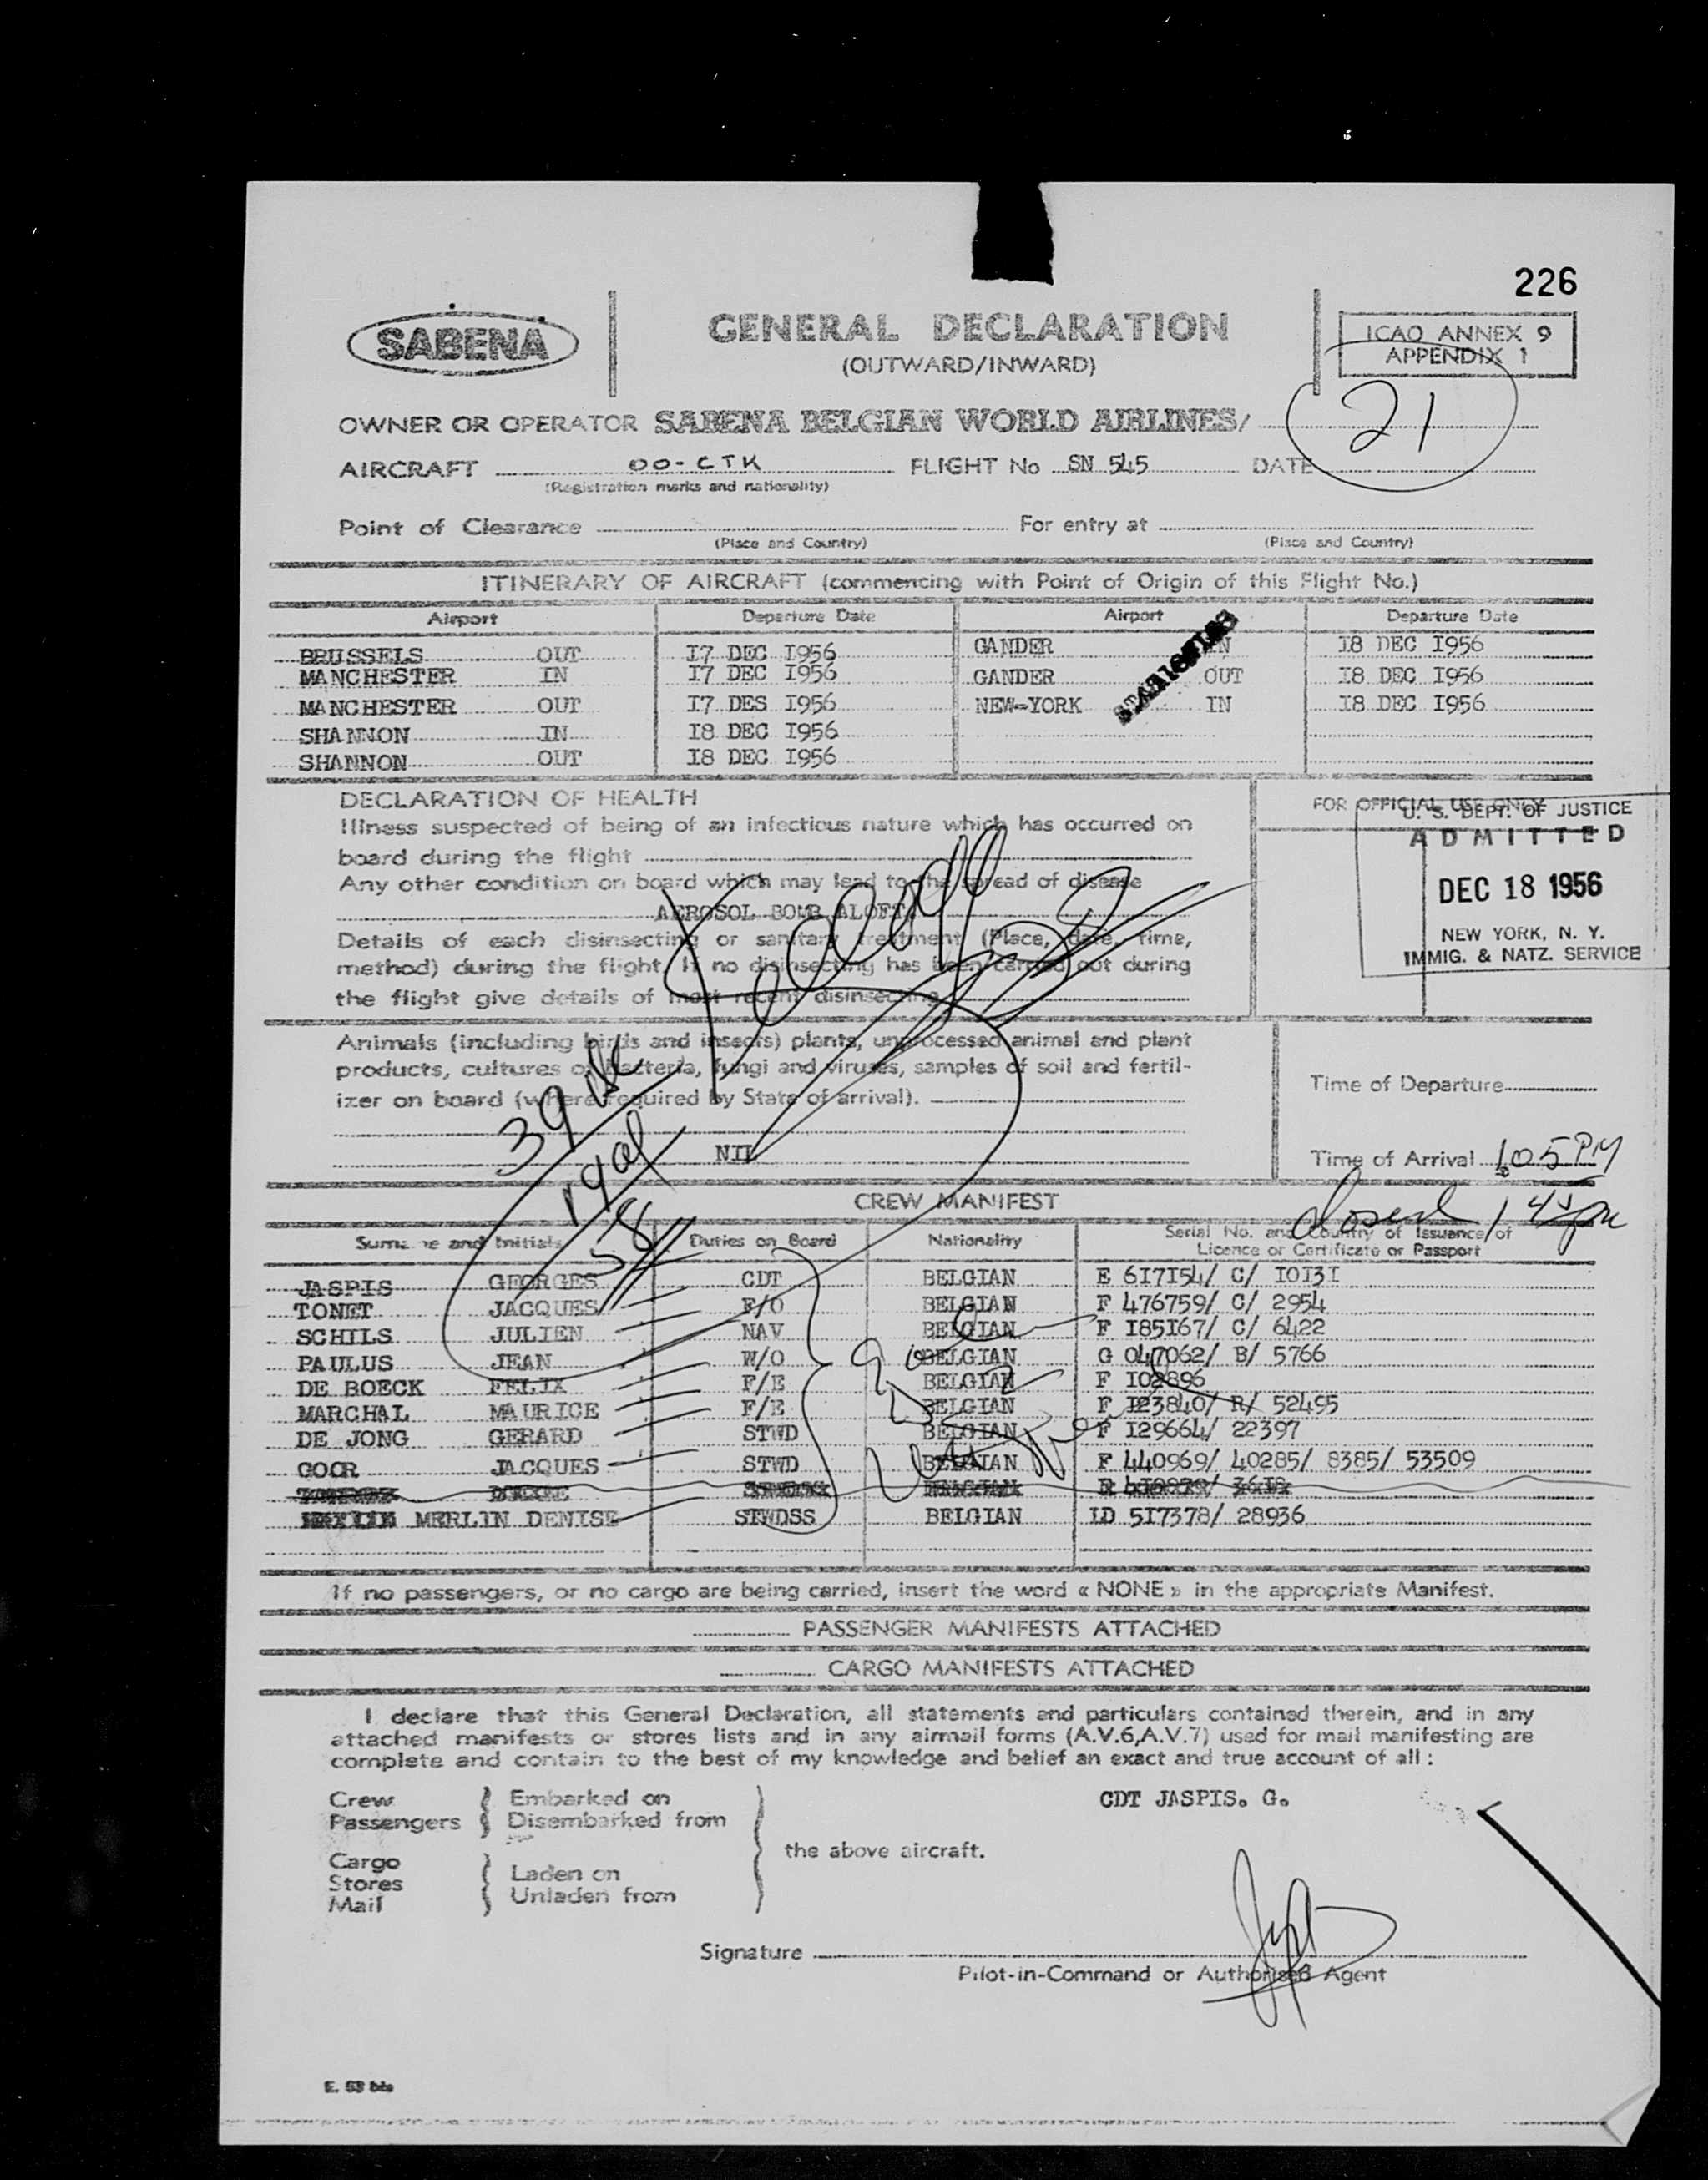 226
SABENA
GENERAL DECLARATION
(OUTWARD/INWARD)
ICAO ANNEX 9
APPENDIX 1
21
OWNER OR OPERATOR SABENA BELGIAN WORLD AIRLINES/
AIRCRAFT OO-CTK FLIGHT No SN 545 DATE
(Registration marks and nationality)
Point of Clearance For entry at
(Place and Country) (Place and Country)
ITINERARY OF AIRCRAFT (commencing with Point of Origin of this Flight No.)
Airport Departure Date Airport Departure Date
BRUSSELS OUT I7 DEC I956 GANDER IN I8 DEC I956
MANCHESTER IN I7 DEC I956 GANDER OUT I8 DEC I956
MANCHESTER OUT I7 DES I956 NEW-YORK IN I8 DEC I956
SHANNON IN I8 DEC I956
SHANNON OUT I8 DEC I956
DECLARATION OF HEALTH
Illness suspected of being of an infectious nature which has occurred on
board during the flight
Any other condition on board which may lead to the spread of disease
AEROSOL BOMB ALOFT.
Details of each disinsecting or sanitary treatment (Place, date, time,
method) during the flight. If no disinsecting has been carried out during
the flight give details of most recent disinsecting
FOR OFFICIAL USE ONLY
U. S. DEPT. OF JUSTICE
ADMITTED
DEC 18 1956
NEW YORK, N. Y.
IMMIG. & NATZ. SERVICE
Animals (including birds and insects) plants, unprocessed animal and plant
products, cultures of bacteria, fungi and viruses, samples of soil and fertil-
izer on board (where required by State of arrival).
NIL
39
58
Time of Departure
Time of Arrival 1.05 PM
closed 1 45 pm
CREW MANIFEST
Surname and Initials Duties on Board Nationality Serial No. and Country of Issuance of
Licence or Certificate or Passport
JASPIS GEORGES CDT BELGIAN E 6I7I54/ C/ I0I3I
TONET JACQUES F/O BELGIAN F 476759/ C/ 2954
SCHILS JULIEN NAV BELGIAN F I85I67/ C/ 6422
PAULUS JEAN W/O BELGIAN G 047062/ B/ 5766
DE BOECK FELIX F/E BELGIAN F I02896
MARCHAL MAURICE F/E BELGIAN F I23840/ R/ 52495
DE JONG GERARD STWD BELGIAN F I29664/ 22397
GOOR JACQUES STWD BELGIAN F 440969/ 40285/ 8385/ 53509
MERLIN DENISE STWDSS BELGIAN LD 5I7378/ 28936
If no passengers, or no cargo are being carried, insert the word « NONE » in the appropriate Manifest.
PASSENGER MANIFESTS ATTACHED
CARGO MANIFESTS ATTACHED
I declare that this General Declaration, all statements and particulars contained therein, and in any
attached manifests or stores lists and in any airmail forms (A.V.6,A.V.7) used for mail manifesting are
complete and contain to the best of my knowledge and belief an exact and true account of all :
Crew Embarked on
Passengers Disembarked from
the above aircraft.
Cargo
Stores Laden on
Mail Unladen from
CDT JASPIS. G.
Signature
Pilot-in-Command or Authorised Agent
E. 53 bis